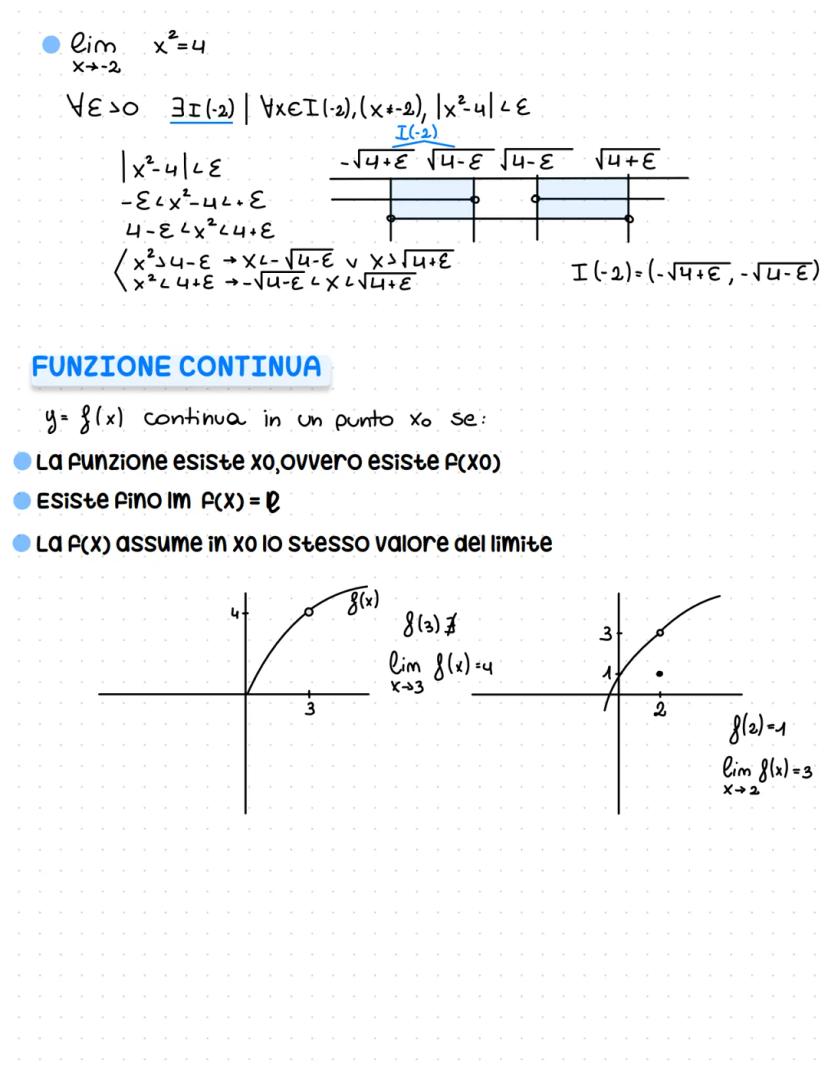 lim x²=4
x→-2
∀ε>0 ∃I(-2) | ∀x∈I(-2),(x≠-2), |x²-4|<ε
I(-2)
|x²-4|<ε
-√4+ε √4-ε √4-ε √4+ε
-ε<x²-4<+ε
4-ε<x²<4+ε
x²>4-ε → x<-√4-ε ∨ x>√4+ε
x²<4+ε → -√4-ε<x<√4+ε
I(-2)=(-√4+ε, -√4-ε)
FUNZIONE CONTINUA
y=f(x) continua in un punto x₀ se:
La funzione esiste X0,ovvero esiste f(X0)
Esiste fino lm f(X) = ℓ
La f(X) assume in X0 lo stesso valore del limite
4 f(x)
f(3)∄
lim f(x)=4
x→3
3
3
1
2
f(2)=1
lim f(x)=3
x→2